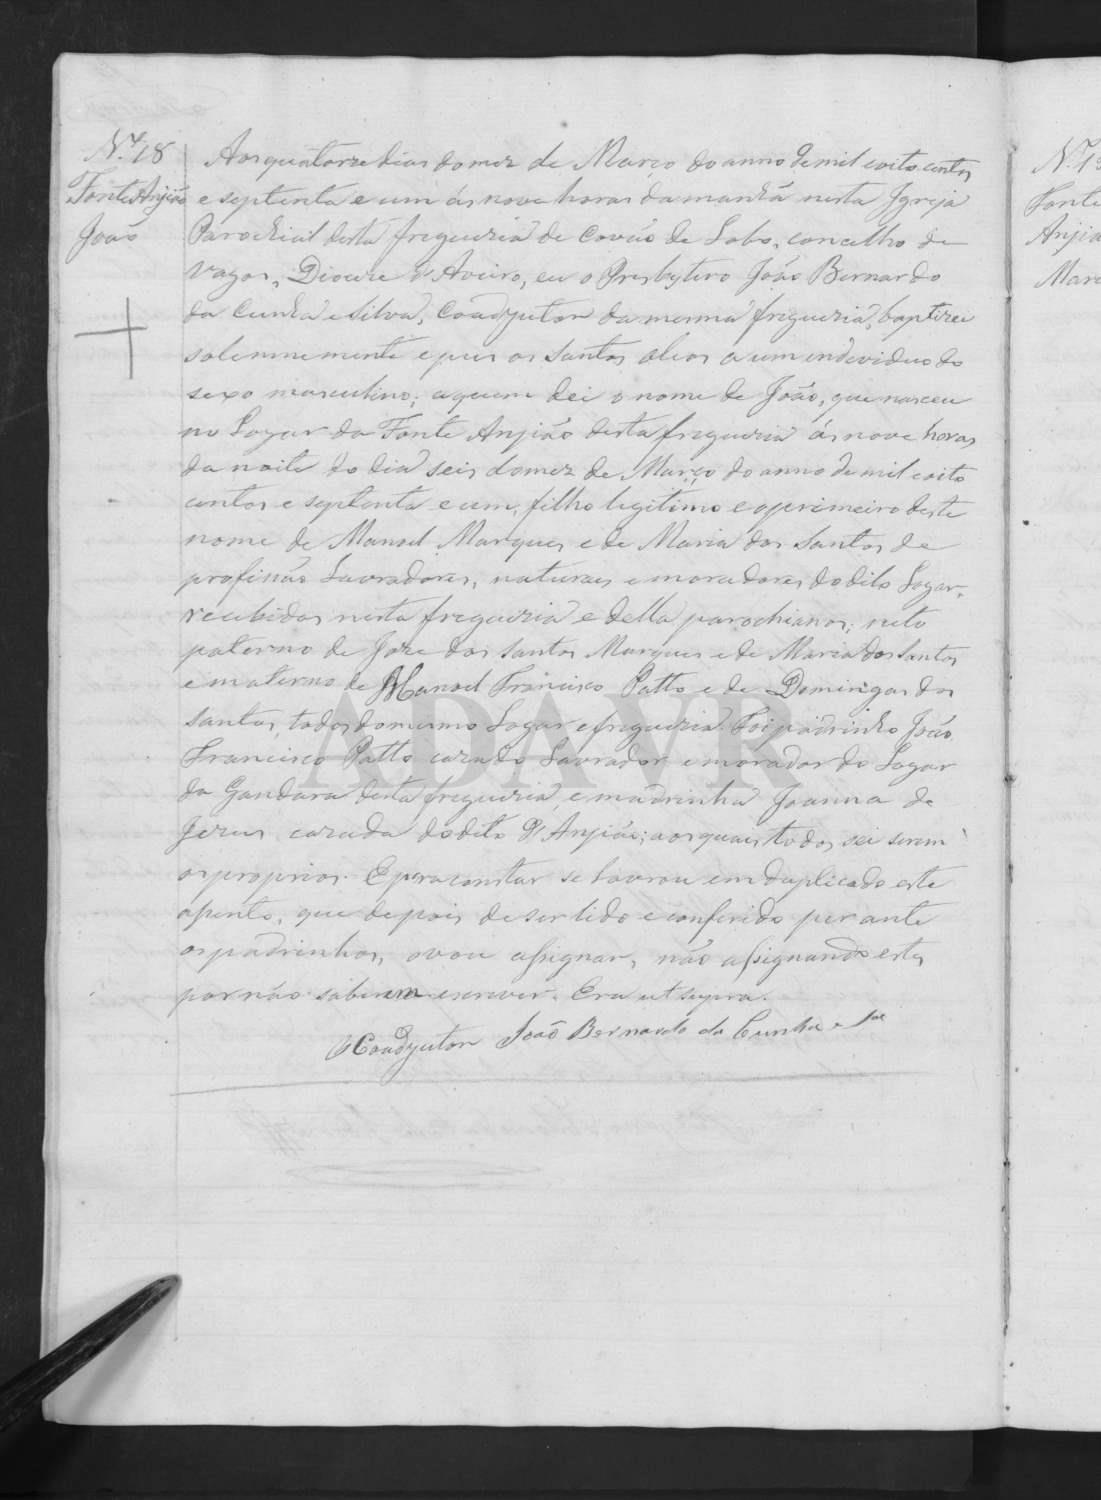 N.º 18
Fonte Anjião
João
Aos quatorze dias do mez de Março do anno de mil oito centos
e septenta e um ás nove horas da manhã nesta Igreja
Parochial desta freguezia de Covão de Lobo, concelho de
Vagos, Diocese d'Aveiro, eu o Presbytero João Bernardo
da Cunha e Silva, Coadjutor da mesma freguezia, baptizei
solemnemente e puz os santos oleos a um endeviduo do
sexo masculino; a quem dei o nome de João, que nasceu
no Logar da Fonte Anjião desta freguezia ás nove horas
da noite do dia seis do mez de Março do anno de mil oito
centos e septenta e um, filho legitimo e o primeiro deste
nome de Manoel Marques e de Maria dos Santos de
profissão Lavradores, naturaes e moradores do dito Logar,
recebidos nesta freguezia e della parochianos; neto
paterno de Joze dos Santos Marques e de Maria dos Santos
e materno de Manoel Francisco Patto e de Domingas dos
Santos, todos do mesmo Logar e freguezia. Foi padrinho João
Francisco Patto cazado Lavrador e morador do Logar
da Gandara desta freguezia, e madrinha Joanna de
Jezus cazada do dito Anjião; aos quaes todos sei serem
os proprios. E para constar se lavrou em duplicado este
assento, que depois de ser lido e conferido perante
os padrinhos, o vou assignar, não assignando estes
por não saberem escrever. Era ut supra.
O Coadjutor João Bernardo da Cunha e Sa
ADAVR
Fonte
Anjião